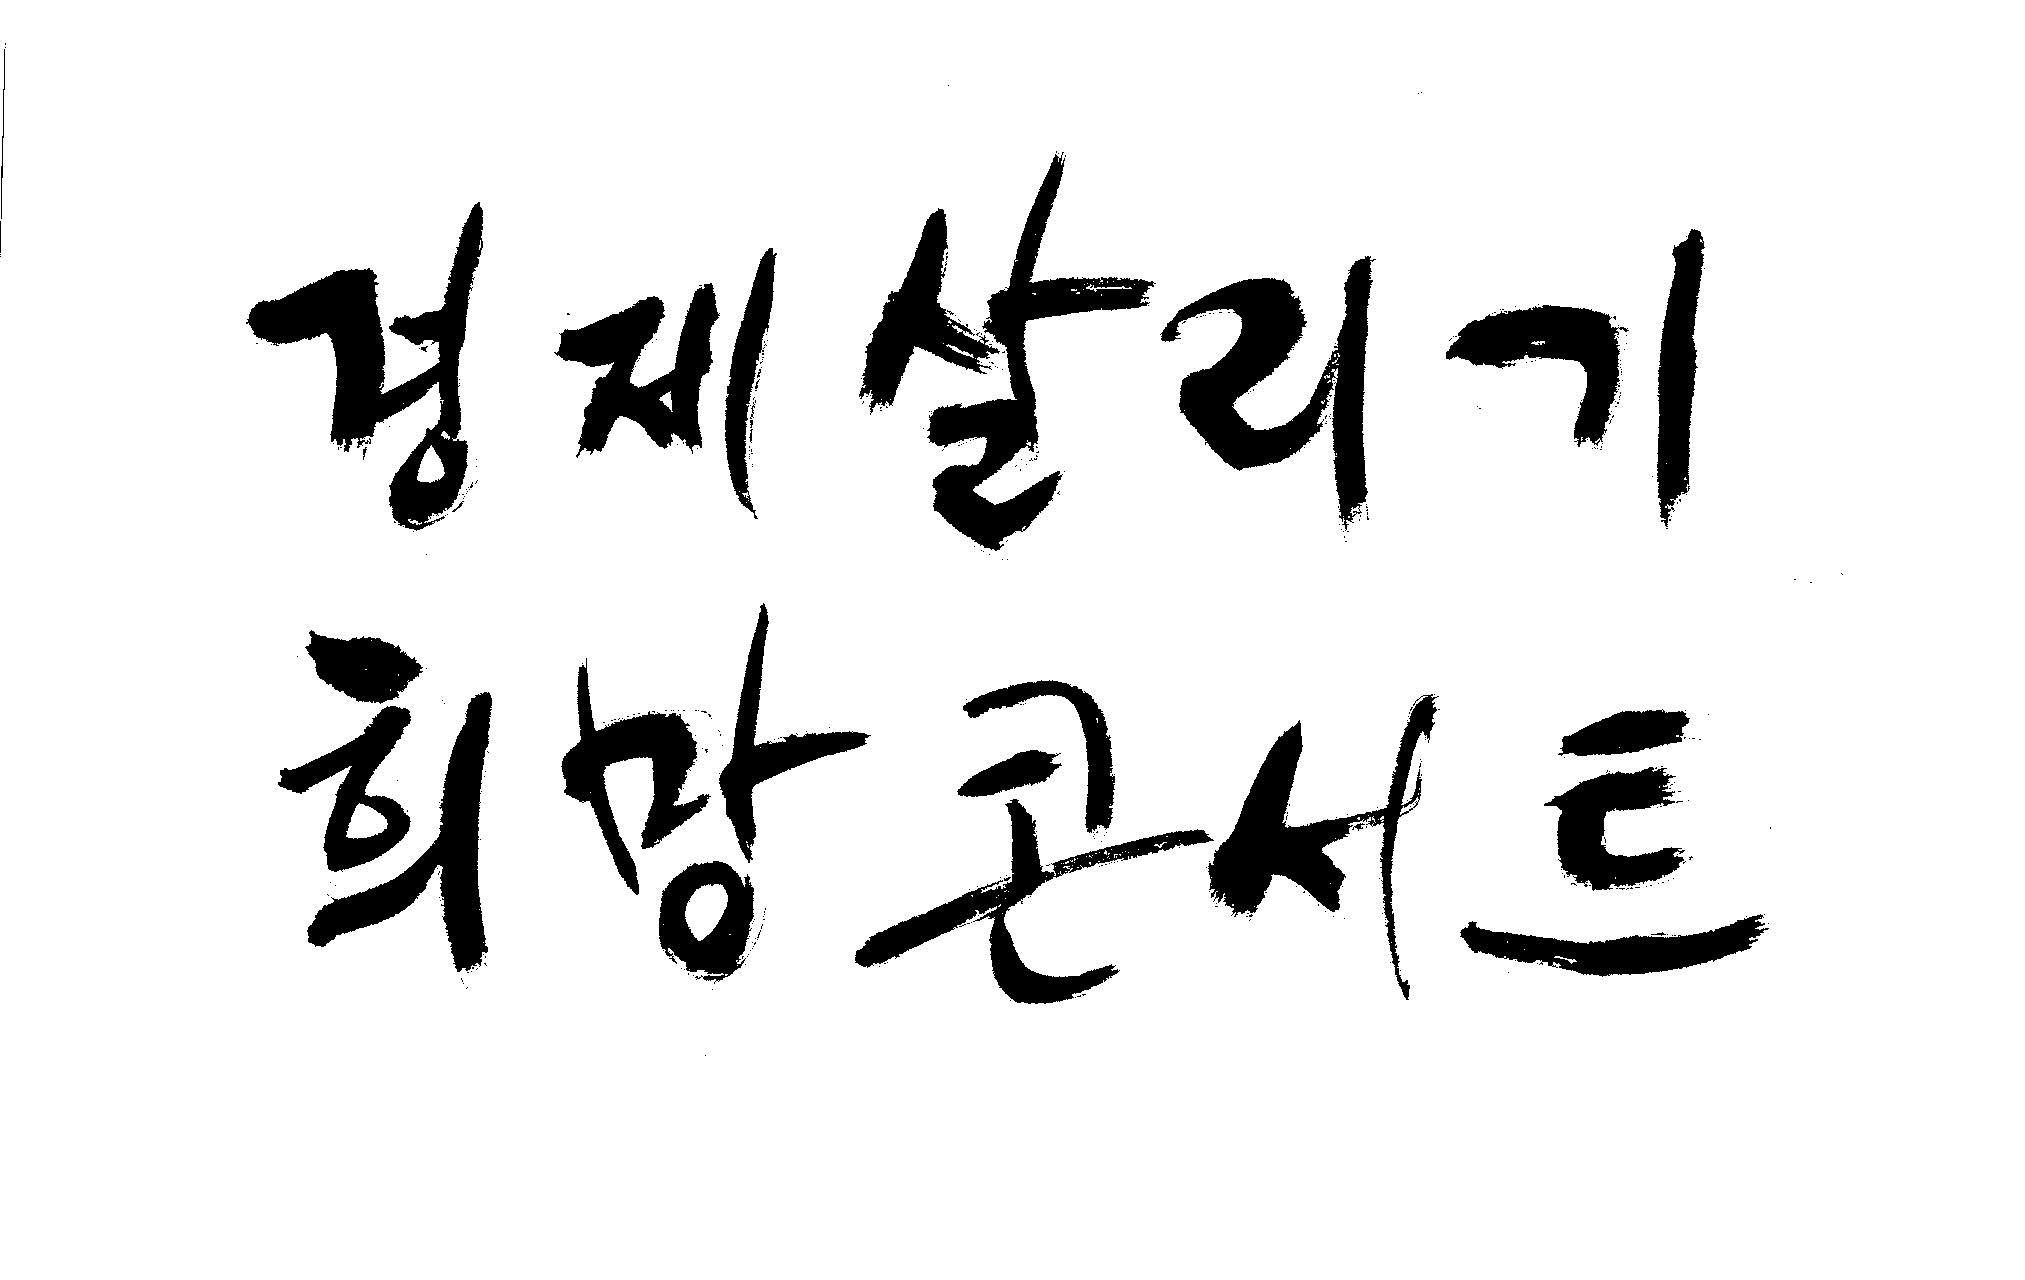 경제살리기
희망콘서트